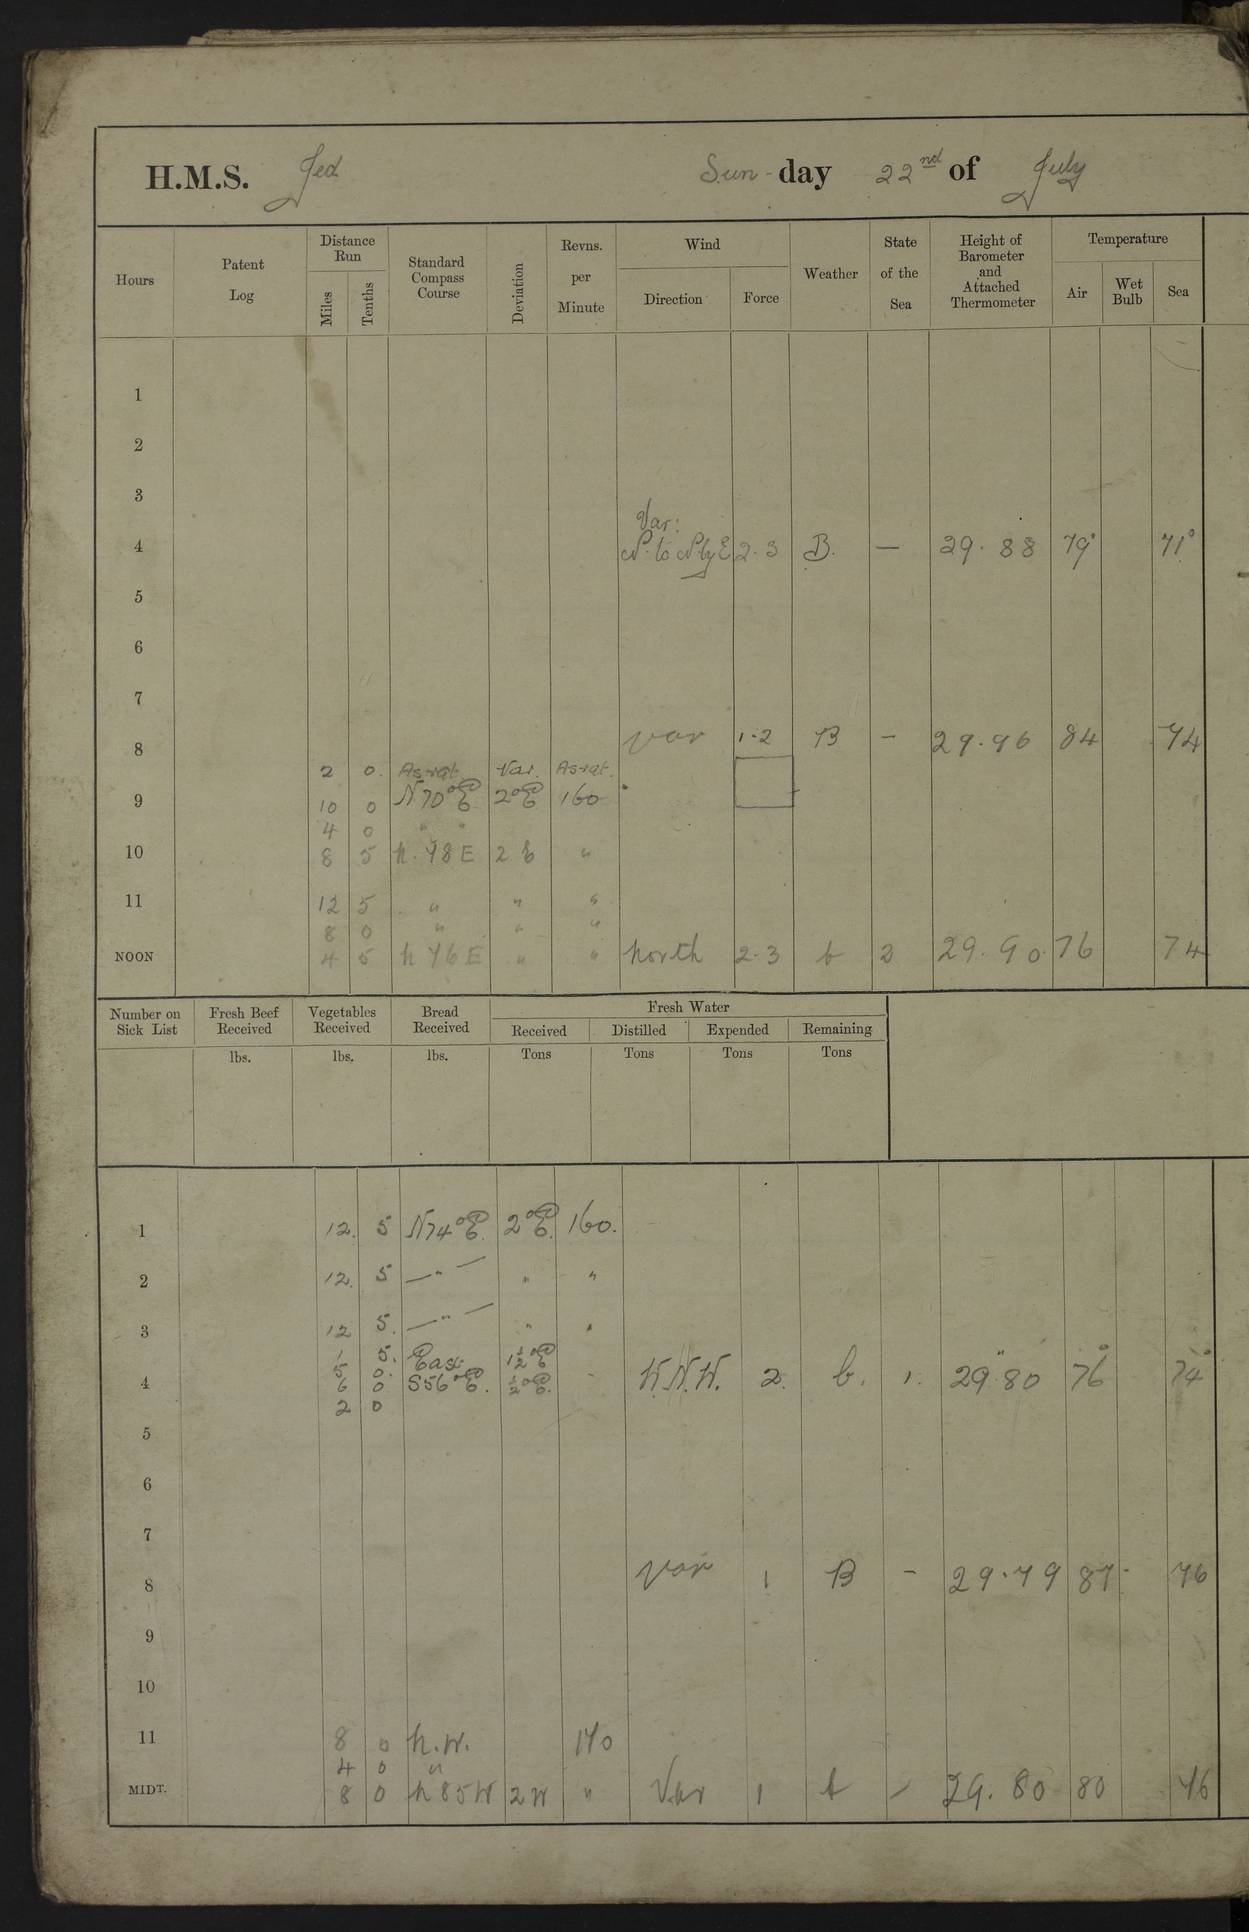 H.M.S. Jed Sun-day 22nd of July
Hours
Patent Log
Distance Run
Miles
Tenths
Standard Compass Course
Deviation
Revns. per Minute
Wind
Direction
Force
Weather
State of the Sea
Height of Barometer and Attached Thermometer
Temperature
Air
Wet Bulb
Sea
1
2
3
Var:
4 N. to N by E 2.3 B. — 29.88 79° 71°
5
6
7
8 Var 1.2 B – 29.96 84 74
2 0. As req. Var. As req.
9 10 0 N70°E 2°E 160
4 0 " "
10 8 5 N. 78 E 2 E "
11 12 5 " " "
8 0 " " "
NOON 4 5 N 76 E " " North 2.3 b 2 29.90 76 74
Number on Sick List
Fresh Beef Received
Vegetables Received
Bread Received
Fresh Water
Received
Distilled
Expended
Remaining
lbs. lbs. lbs. Tons Tons Tons Tons
1 12. 5 N74°E. 2°E. 160.
2 12. 5 — " — " "
3 12 5. — " — " "
1 5. East 1½°E
5 0.
4 6 0 S56°E. ½°E. - W.N.W. 2. b. 1. 29.80 76° 74°
2 0
5
6
7
8 Var 1 B – 29.79 87 76
9
10
11 8 0 N.W. 170
4 0 "
MIDT. 8 0 N 85 W 2 W " Var 1 b – 29.80 80 76